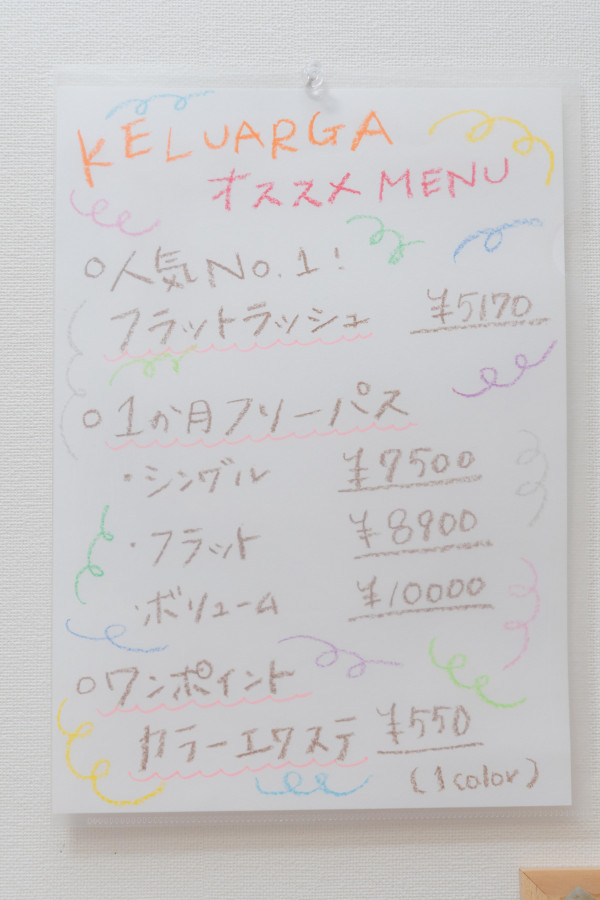 KELUARGA
オススメMENU
○人気No.1!
フラットラッシュ ¥5170
○1か月フリーパス
・シングル ¥7500
・フラット ¥8900
・ボリューム ¥10000
○ワンポイント
カラーエクステ ¥550
(1color)